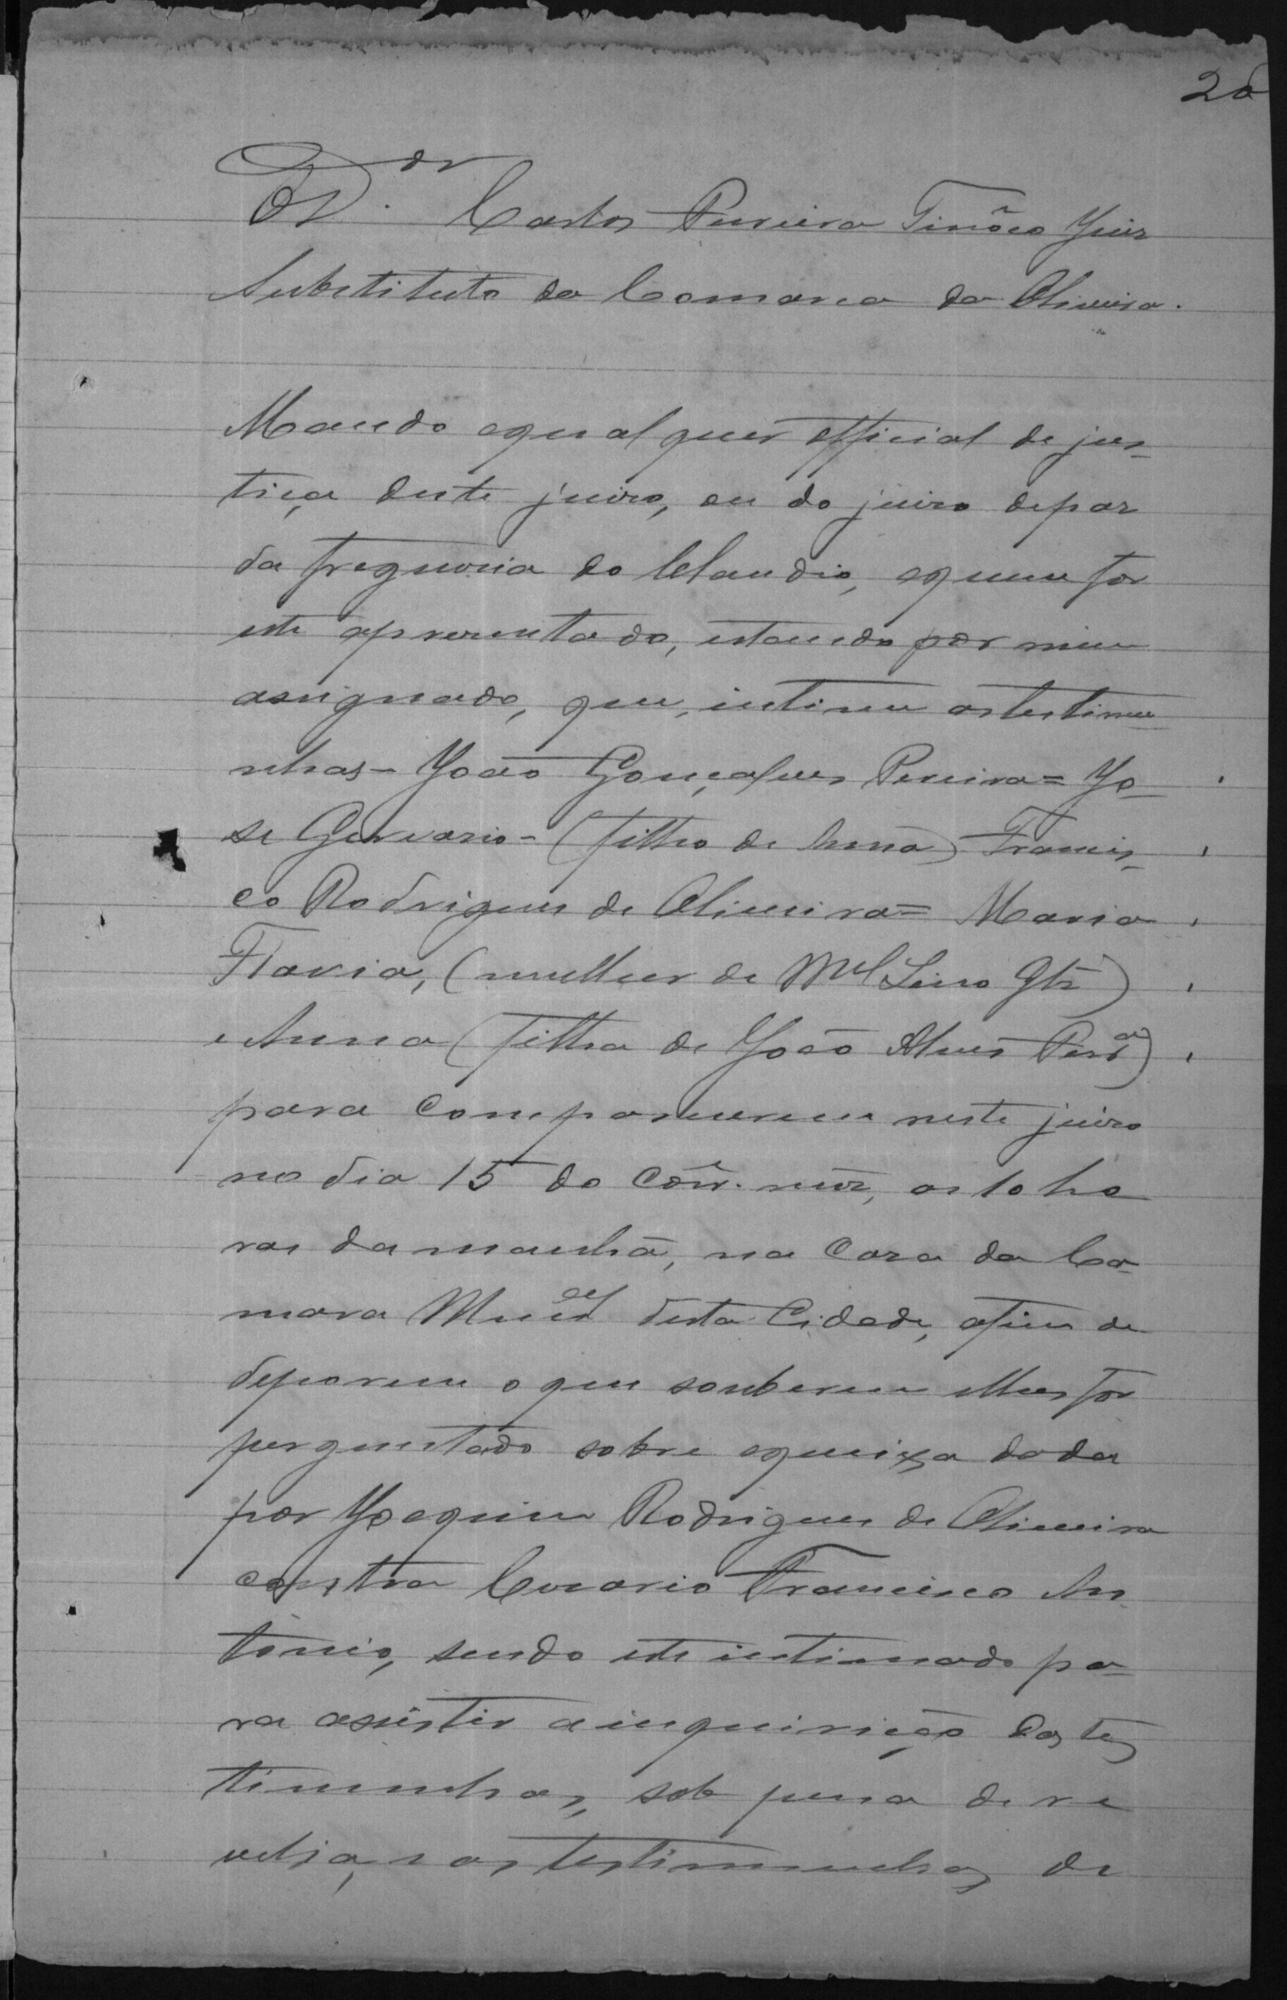 26
O Dr. Carlos Pereira Tinôco Juiz
Substituto da Comarca da Oliveira.
Mando aqualquer official de jus-
tiça deste juizo, ou do juizo depaz
da freguezia do Claudio, aquem for
este apresentado, estando por mim
assignado, que, intime astestimu
nhas- João Gonçalves Pereira= Jo-
se Gervasio- (filho de Anna) Francis-
co Rodrigues de Oliveira= Maria
Flavia, (mulher de Mel Lino Glz)
e Anna (filha de João Alves Pera)
para comparecerem neste juizo
no dia 15 do corr. mez, as 10 ho
ras da manhã, na Caza da Ca-
mara Munical desta Cidade, afim de
deporem o que souberem elhes for
perguntado sobre aqueixa dada
por Joaquim Rodrigues de Oliveira
contra Cesario Francisco An
tonio, sendo este intimado pa-
ra assistir a inquirição das tes
timunhas, sob pena de re
velia, e as testimunhas de